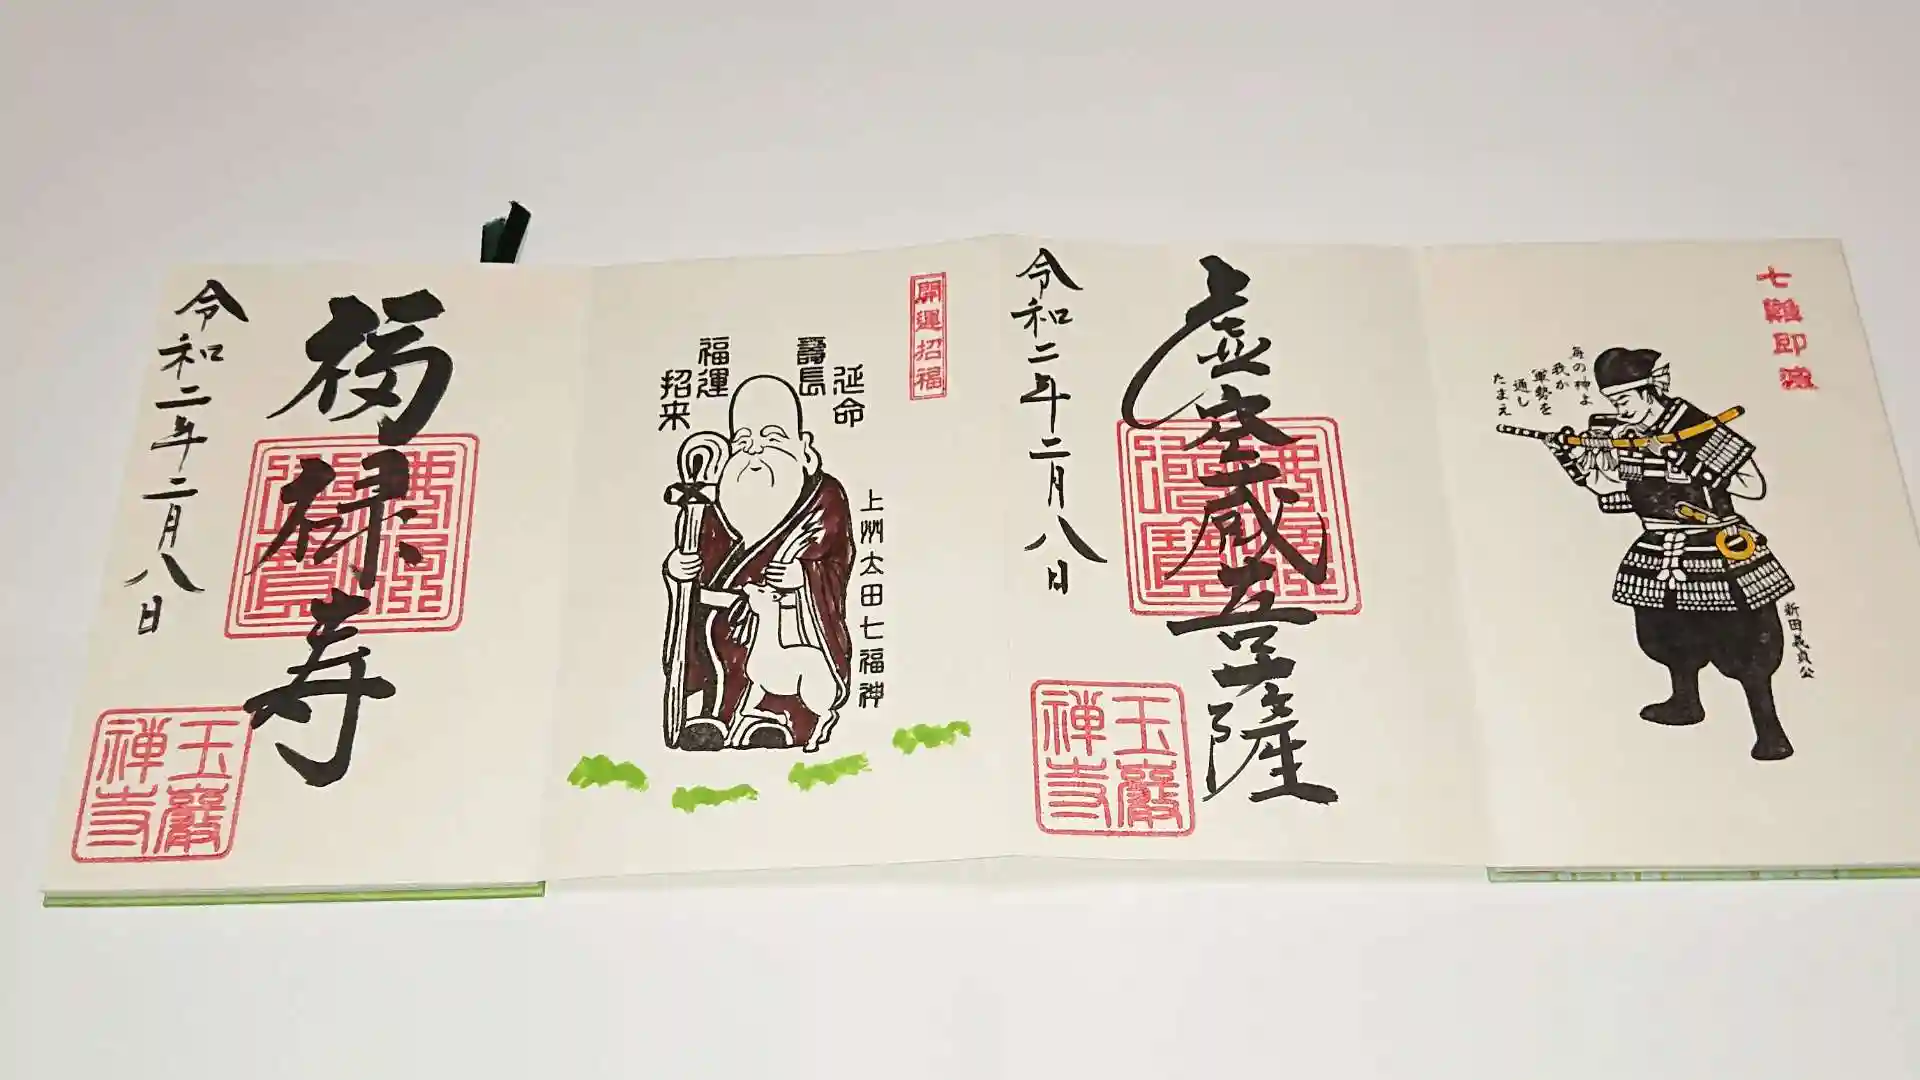 七難即滅
海の神よ
我が
軍勢を
通し
たまえ
新田義貞公
虚空蔵菩薩
令和二年二月八日
佛法僧寶
玉巖禅寺
開運招福
延命
壽長
福運
招来
上州太田七福神
福禄寿
令和二年二月八日
佛法僧寶
玉巖禅寺